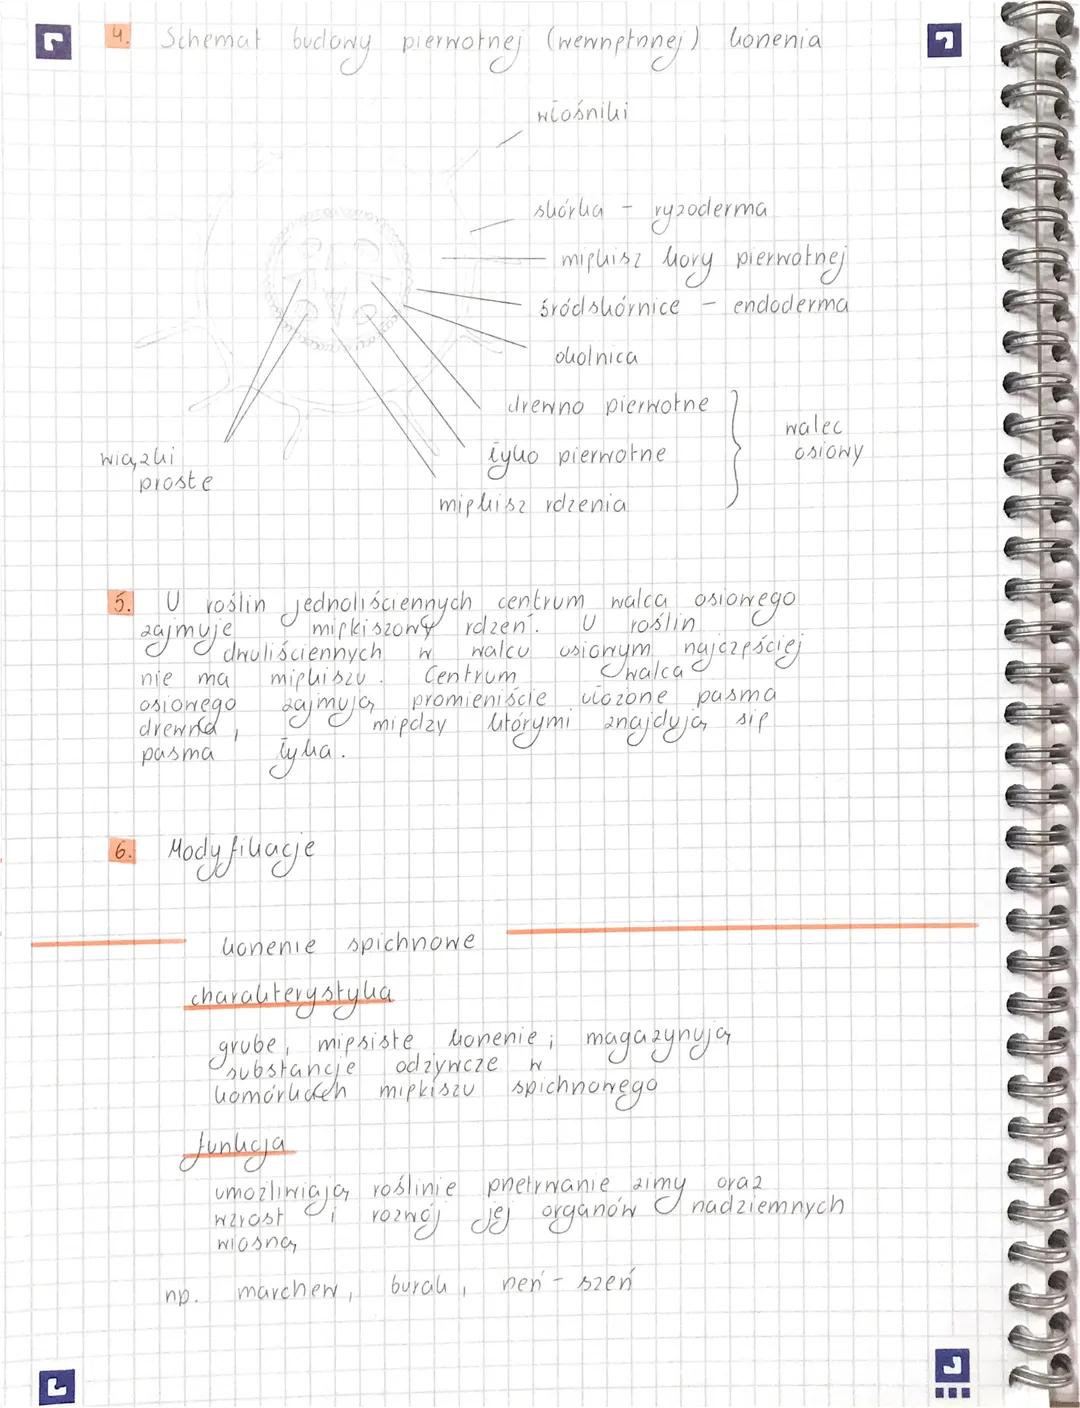 4. Schemat budowy pierwotnej (wewnętrznej) korzenia
włośniki
skórka - ryzoderma
miękisz kory pierwotnej
śródskórnice - endoderma
okolnica
drewno pierwotne
łyko pierwotne
miękisz rdzenia
walec
osiowy
wiązki
proste
5. U roślin jednoliściennych centrum walca osiowego
zajmuje miękiszowy rdzeń. U roślin
dwuliściennych w walcu osiowym najczęściej
nie ma miękiszu. Centrum walca
osiowego zajmują promieniście ułożone pasma
drewna, między którymi znajdują się
pasma łyka.
6. Modyfikacje
korzenie spichrzowe
charakterystyka
grube, mięsiste korzenie; magazynują
substancje odżywcze w
komórkach miękiszu spichrzowego
funkcja
umożliwiają roślinie przetrwanie zimy oraz
wzrost i rozwój jej organów nadziemnych
wiosną
np. marchew, burak, żeń-szeń